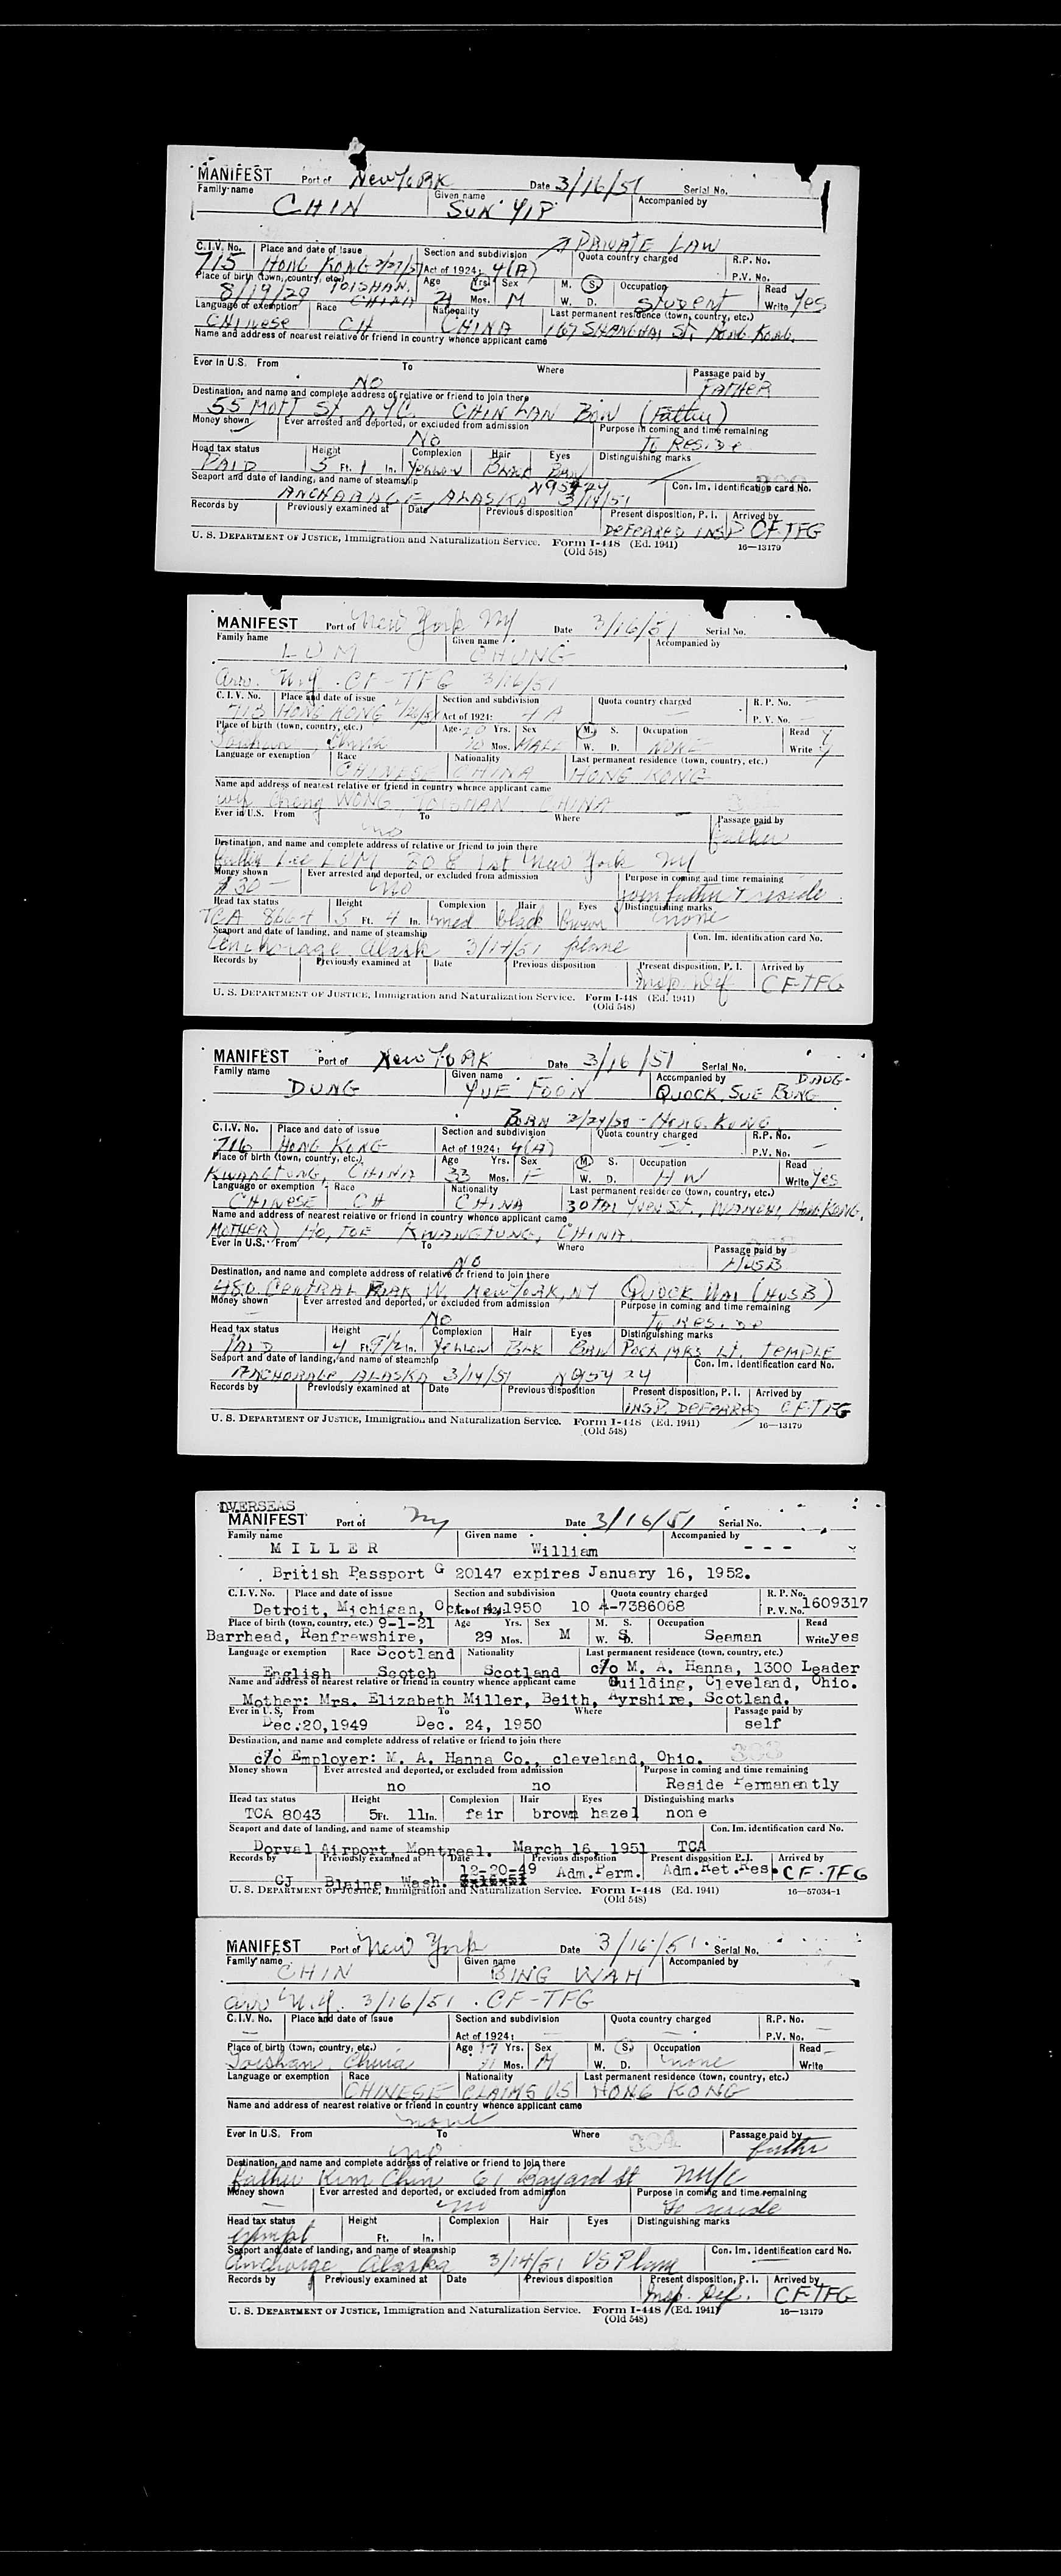 MANIFEST Port of New York Date 3/16/51 Serial No.
Family name Given name Accompanied by
CHIN SUN YIP
PRIVATE LAW
C.I.V. No. Place and date of issue Section and subdivision Quota country charged R.P. No.
715 HONG KONG Act of 1924: 4(A) P.V. No.
Place of birth (town, country, etc.) Age Yrs. Sex M. S. Occupation Read
8/19/29 TOISHAN, CHINA 21 Mos. M W. D. Student Write Yes
Language or exemption Race Nationality Last permanent residence (town, country, etc.)
Chinese CH CHINA 167 SHANGHAI ST. HONG KONG.
Name and address of nearest relative or friend in country whence applicant came
Ever in U.S. From To Where Passage paid by
NO FATHER
Destination, and name and complete address of relative or friend to join there
55 MOTT ST. NYC. CHIN LAN (Father)
Money shown Ever arrested and deported, or excluded from admission Purpose in coming and time remaining
No To Reside
Head tax status Height Complexion Hair Eyes Distinguishing marks
PAID 5 Ft. 1 In. Yellow Black Brn
Seaport and date of landing, and name of steamship N95424 Con. Im. identification card No.
ANCHORAGE, ALASKA 3/14/51
Records by Previously examined at Date Previous disposition Present disposition, P. I. Arrived by
DEFERRED INSP CF-TFG
U. S. DEPARTMENT OF JUSTICE, Immigration and Naturalization Service. Form I-448 (Ed. 1941) 16—13179
(Old 548)
MANIFEST Port of New York NY Date 3/16/51 Serial No.
Family name Given name Accompanied by
LUM CHUNG
arr. N.Y. CF-TFG 3/16/51
C. I. V. No. Place and date of issue Section and subdivision Quota country charged R. P. No.
713 HONG KONG Act of 1924: 4 A P. V. No.
Place of birth (town, country, etc.) Age Yrs. Sex M. S. Occupation Read y
China Mos. MALE W. D. NONE Write y
Language or exemption Race Nationality Last permanent residence (town, country, etc.)
CHINESE CHINA HONG KONG
Name and address of nearest relative or friend in country whence applicant came
wife WONG TOISHAN CHINA
Ever in U.S. From To Where Passage paid by
no father
Destination, and name and complete address of relative or friend to join there
father LUM New York NY
Money shown Ever arrested and deported, or excluded from admission Purpose in coming and time remaining
$30 — no join father & reside
Head tax status Height Complexion Hair Eyes Distinguishing marks
TCA 5 Ft. 4 In. med black Brown none
Seaport and date of landing, and name of steamship Con. Im. identification card No.
Anchorage Alaska plane
Records by Previously examined at Date Previous disposition Present disposition, P. I. Arrived by
Insp. Def CF-TFG
U. S. DEPARTMENT OF JUSTICE, Immigration and Naturalization Service. Form I-448 (Ed. 1941)
(Old 548)
MANIFEST Port of New York Date 3/16/51 Serial No.
Family name Given name Accompanied by DAUG-
DUNG YUE FOON QUOCK SUE
BORN HONG KONG
C.I.V. No. Place and date of issue Section and subdivision Quota country charged R.P. No.
716 HONG KONG Act of 1924: 4(A) P.V. No.
Place of birth (town, country, etc.) Age Yrs. Sex M. S. Occupation Read
KWANGTUNG, CHINA 33 Mos. F W. D. HW Write Yes
Language or exemption Race Nationality Last permanent residence (town, country, etc.)
CHINESE CH CHINA YUEN ST., WANCHI, HONG KONG.
Name and address of nearest relative or friend in country whence applicant came
MOTHER) HO, TOE KWANGTUNG, CHINA.
Ever in U.S. From To Where Passage paid by
NO HUSB
Destination, and name and complete address of relative or friend to join there
480 CENTRAL PARK W. NEW YORK, NY QUOCK WAI (HUSB)
Money shown Ever arrested and deported, or excluded from admission Purpose in coming and time remaining
No To Reside
Head tax status Height Complexion Hair Eyes Distinguishing marks
PAID 4 Ft. 9½ In. Yellow BLK BRN POCK MRKS LT. TEMPLE
Seaport and date of landing, and name of steamship Con. Im. Identification card No.
ANCHORAGE, ALASKA 3/14/51 N95424
Records by Previously examined at Date Previous disposition Present disposition, P. I. Arrived by
INSP. DEFERRED CF-TFG
U. S. DEPARTMENT OF JUSTICE, Immigration and Naturalization Service. Form I-448 (Ed. 1941) 16—13179
(Old 548)
OVERSEAS
MANIFEST Port of NY Date 3/16/51 Serial No.
Family name Given name Accompanied by
MILLER William - - -
British Passport G 20147 expires January 16, 1952.
C. I. V. No. Place and date of issue Section and subdivision Quota country charged R. P. No.
Detroit, Michigan, Oct. 4, 1950 Act of 1924: 10 A-7386068 P. V. No. 1609317
Place of birth (town, country, etc.) 9-1-21 Age Yrs. Sex M. S. Occupation Read
Barrhead, Renfrewshire, 29 Mos. M W. D. S. Seaman Write yes
Language or exemption Race Scotland Nationality Last permanent residence (town, country, etc.)
English Scotch Scotland c/o M. A. Hanna, 1300 Leader
Name and address of nearest relative or friend in country whence applicant came Building, Cleveland, Ohio.
Mother: Mrs. Elizabeth Miller, Beith, Ayrshire, Scotland.
Ever in U. S. From To Where Passage paid by
Dec.20,1949 Dec. 24, 1950 self
Destination, and name and complete address of relative or friend to join there
c/o Employer: M. A. Hanna Co., cleveland, Ohio. 303
Money shown Ever arrested and deported, or excluded from admission Purpose in coming and time remaining
no no Reside Permanently
Head tax status Height Complexion Hair Eyes Distinguishing marks
TCA 8043 5 Ft. 11 In. fair brown hazel none
Seaport and date of landing, and name of steamship Con. Im. identification card No.
Dorval Airport, Montreal. March 16, 1951 TCA
Records by Previously examined at Date Previous disposition Present disposition P.I. Arrived by
CJ Blaine, Wash. 12-20-49 Adm.Perm. Adm.Ret.Res. CF-TFG
U. S. DEPARTMENT OF JUSTICE, Immigration and Naturalization Service. Form I-448 (Ed. 1941) 16—57034-1
(Old 548)
MANIFEST Port of New York Date 3/16/51 Serial No.
Family name Given name Accompanied by
CHIN BING WAH
arr N.Y. 3/16/51. CF-TFG
C.I.V. No. Place and date of issue Section and subdivision Quota country charged R.P. No.
Act of 1924: P.V. No.
Place of birth (town, country, etc.) Age 17 Yrs. Sex M. S. Occupation Read
Toishan, China 11 Mos. M W. D. none Write
Language or exemption Race Nationality Last permanent residence (town, country, etc.)
CHINESE CLAIMS US HONG KONG
Name and address of nearest relative or friend in country whence applicant came
none
Ever in U.S. From To Where 304 Passage paid by
no father
Destination, and name and complete address of relative or friend to join there
father Kim Chin 61 Bayard St NYC
Money shown Ever arrested and deported, or excluded from admission Purpose in coming and time remaining
no to reside
Head tax status Height Complexion Hair Eyes Distinguishing marks
exmpt Ft. In.
Seaport and date of landing, and name of steamship Con. Im. identification card No.
Anchorage, Alaska 3/14/51 US Plane
Records by Previously examined at Date Previous disposition Present disposition, P. I. Arrived by
Insp. Def. CF-TFG
U. S. DEPARTMENT OF JUSTICE, Immigration and Naturalization Service. Form I-448 (Ed. 1941) 16—13179
(Old 548)